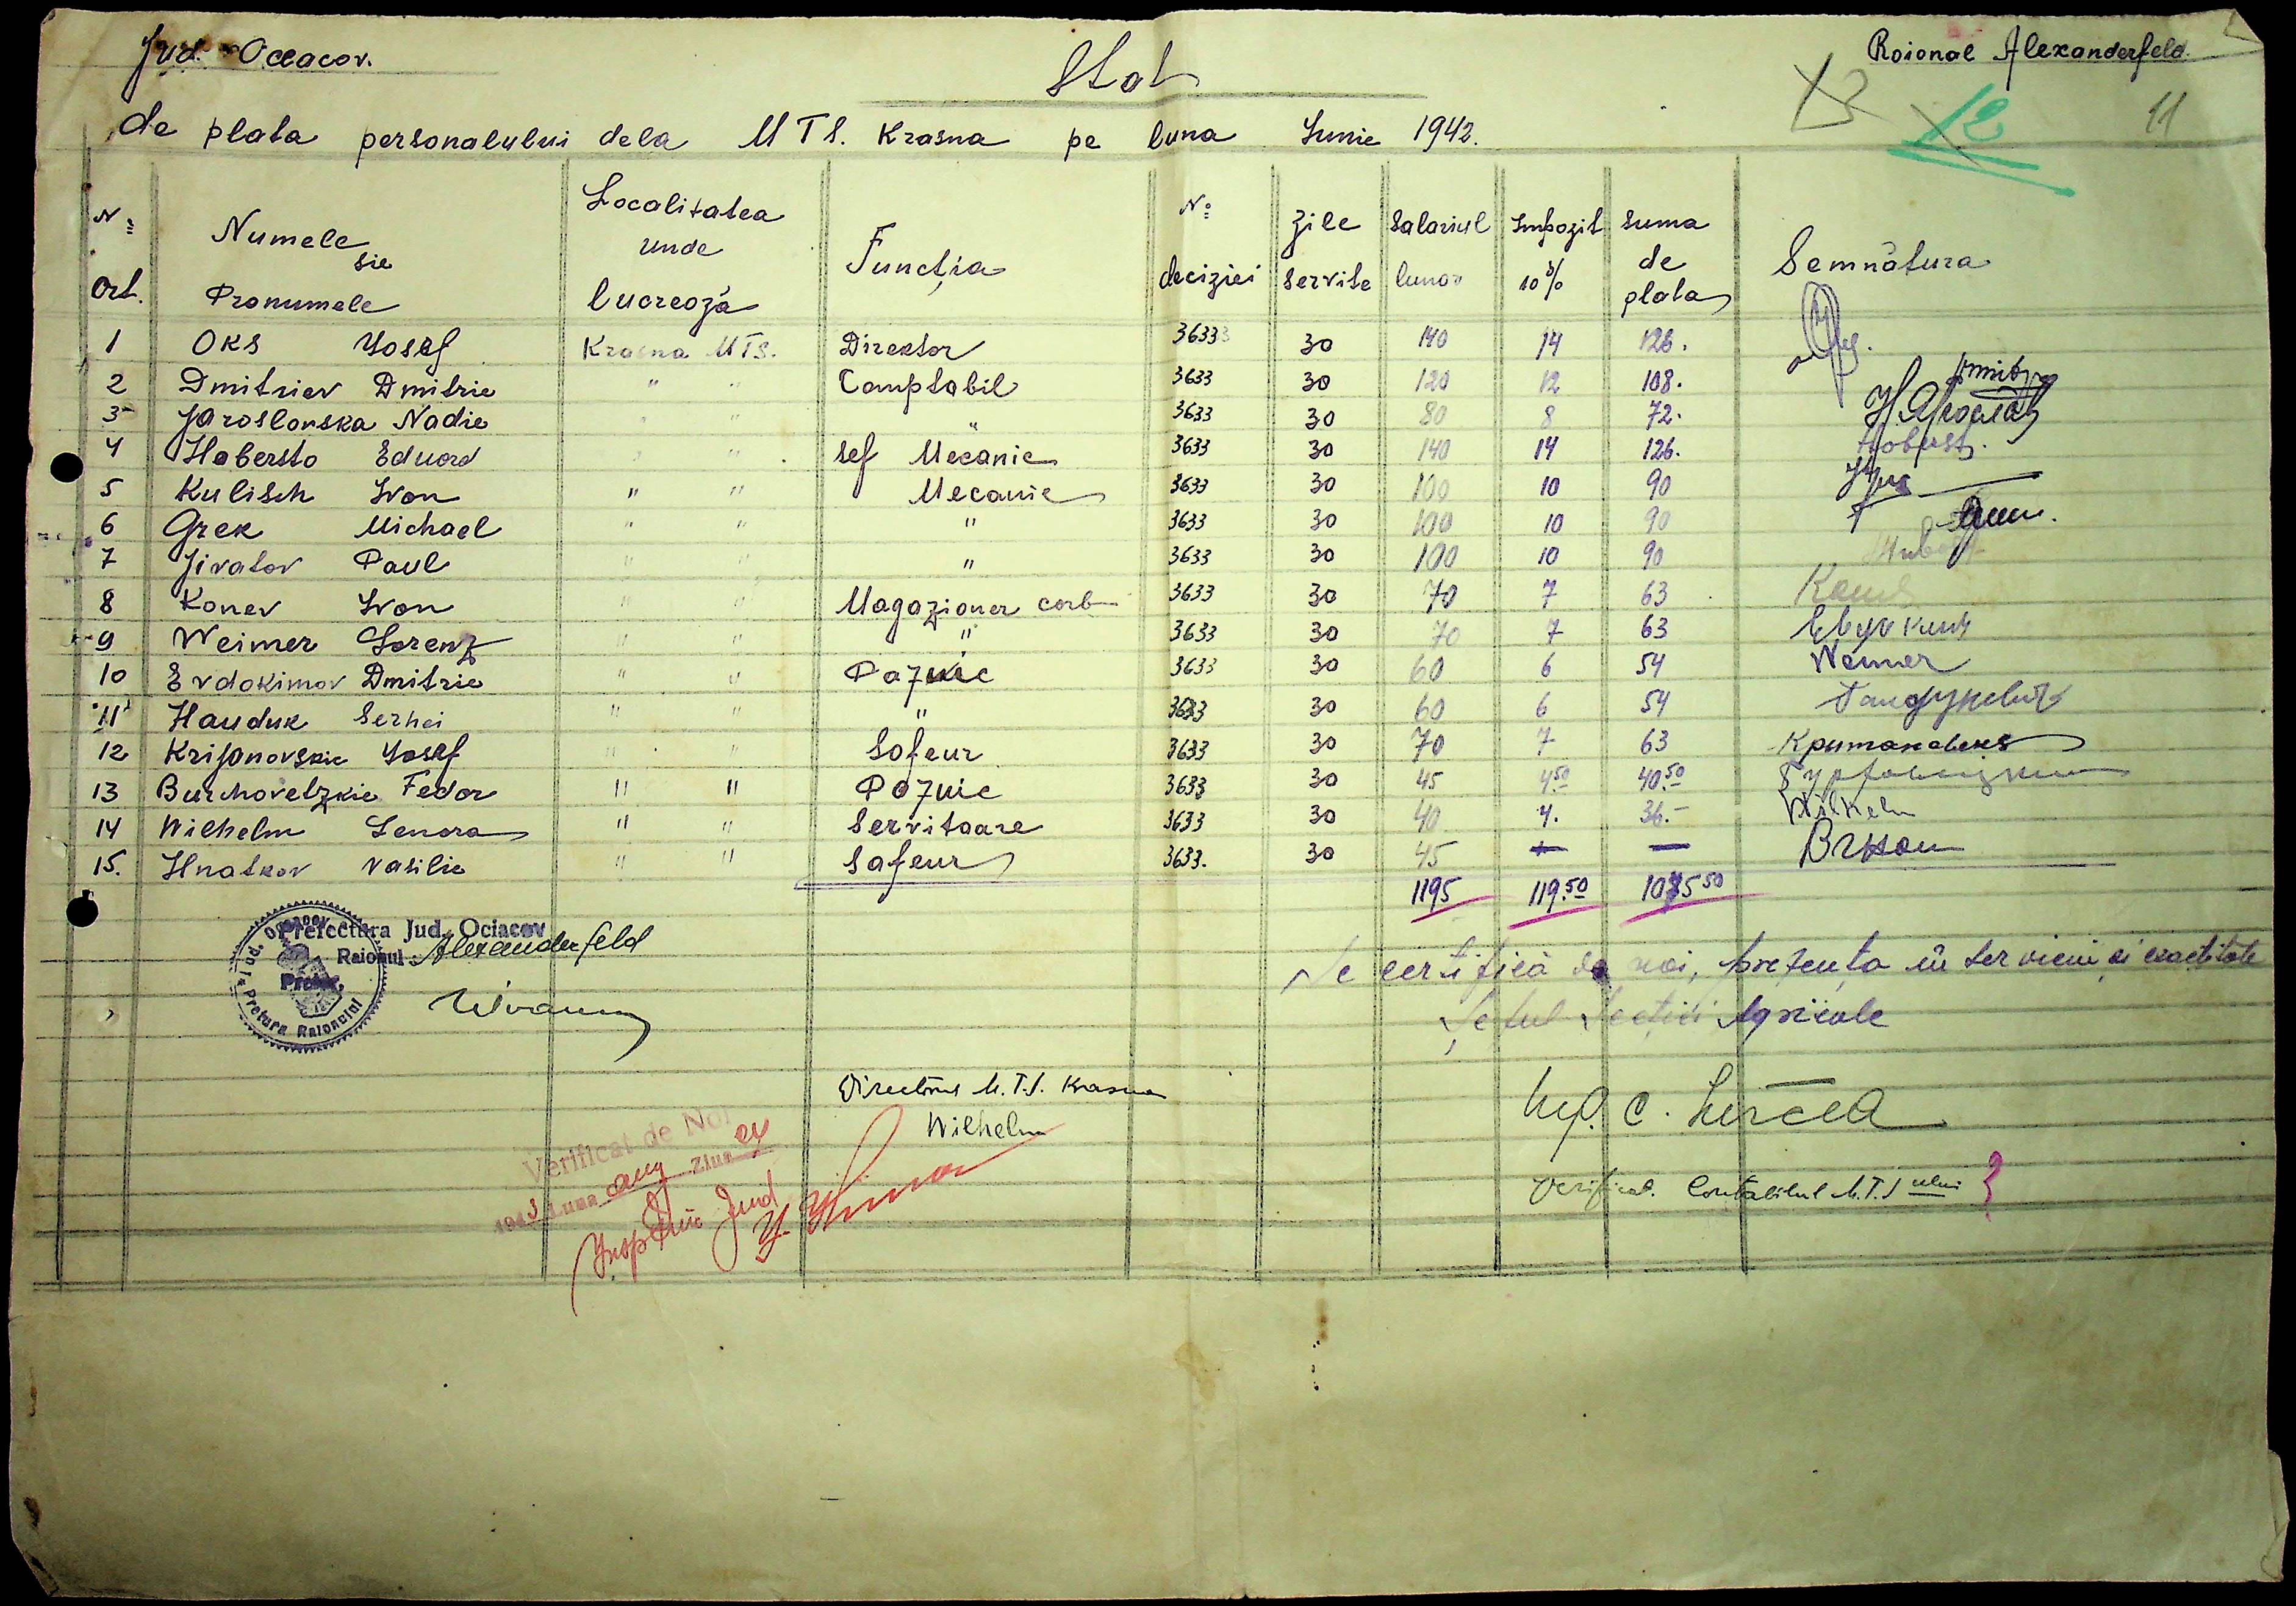 Jud. Oceacov.
Raional Alexanderfeld.
Stat
12
11
de plata personalului dela MTS. Krasna pe luna Iunie 1942.
No Ort. Numele sie Pronumele Localitatea unde lucreoză Funcția No deciziei Zile servite Salariul lunar Impozit 10% Suma de plata Semnătura
1 Oks Yosef Krasna MTS. Direktor 3633 30 140 14 126.
2 Dmitriev Dmitrie " " Comptabil 3633 30 120 12 108.
3 Jaroslovska Nadie " " " 3633 30 80 8 72.
4 Habersto Eduard " " Sef Mecanic 3633 30 140 14 126.
5 Kulisch Ivan " " Mecanic 3633 30 100 10 90
6 Grek Michael " " " 3633 30 100 10 90
7 Jivatov Paul " " " 3633 30 100 10 90
8 Konev Ivan " " Magazioner carb 3633 30 70 7 63
9 Weimer Lorenz " " " 3633 30 70 7 63
10 Evdokimov Dmitrie " " Paznic 3633 30 60 6 54 Weimer
11 Hauduk Serhei " " " 3633 30 60 6 54
12 Krijanovskie Yosef " " Sofeur 3633 30 70 7 63
13 Burchovetzkie Fedor " " Paznic 3633 30 45 4.50 40.50
14 Wilhelm Lenora " " Servitoare 3633 30 40 4. 36.- Wilhelm
15. Hnatkov Vasilie " " Safeur 3633. 30 45 — —
1195 119.50 1075 50
Prefectura Jud. Ociacov
Raionul Alexanderfeld
Pretor,
Jud. Oceacov
Pretura Raionului
Se certifică de noi, prezența în serviciu și exactitate
Șeful Secției Agricole
Directorul M.T.S. Krasna
Wilhelm
Ing. C. Mircea
Verificat de Noi
1943 Luna aug Ziua 24
Insp Jud
Verificat. Contabilul M.T.S ului